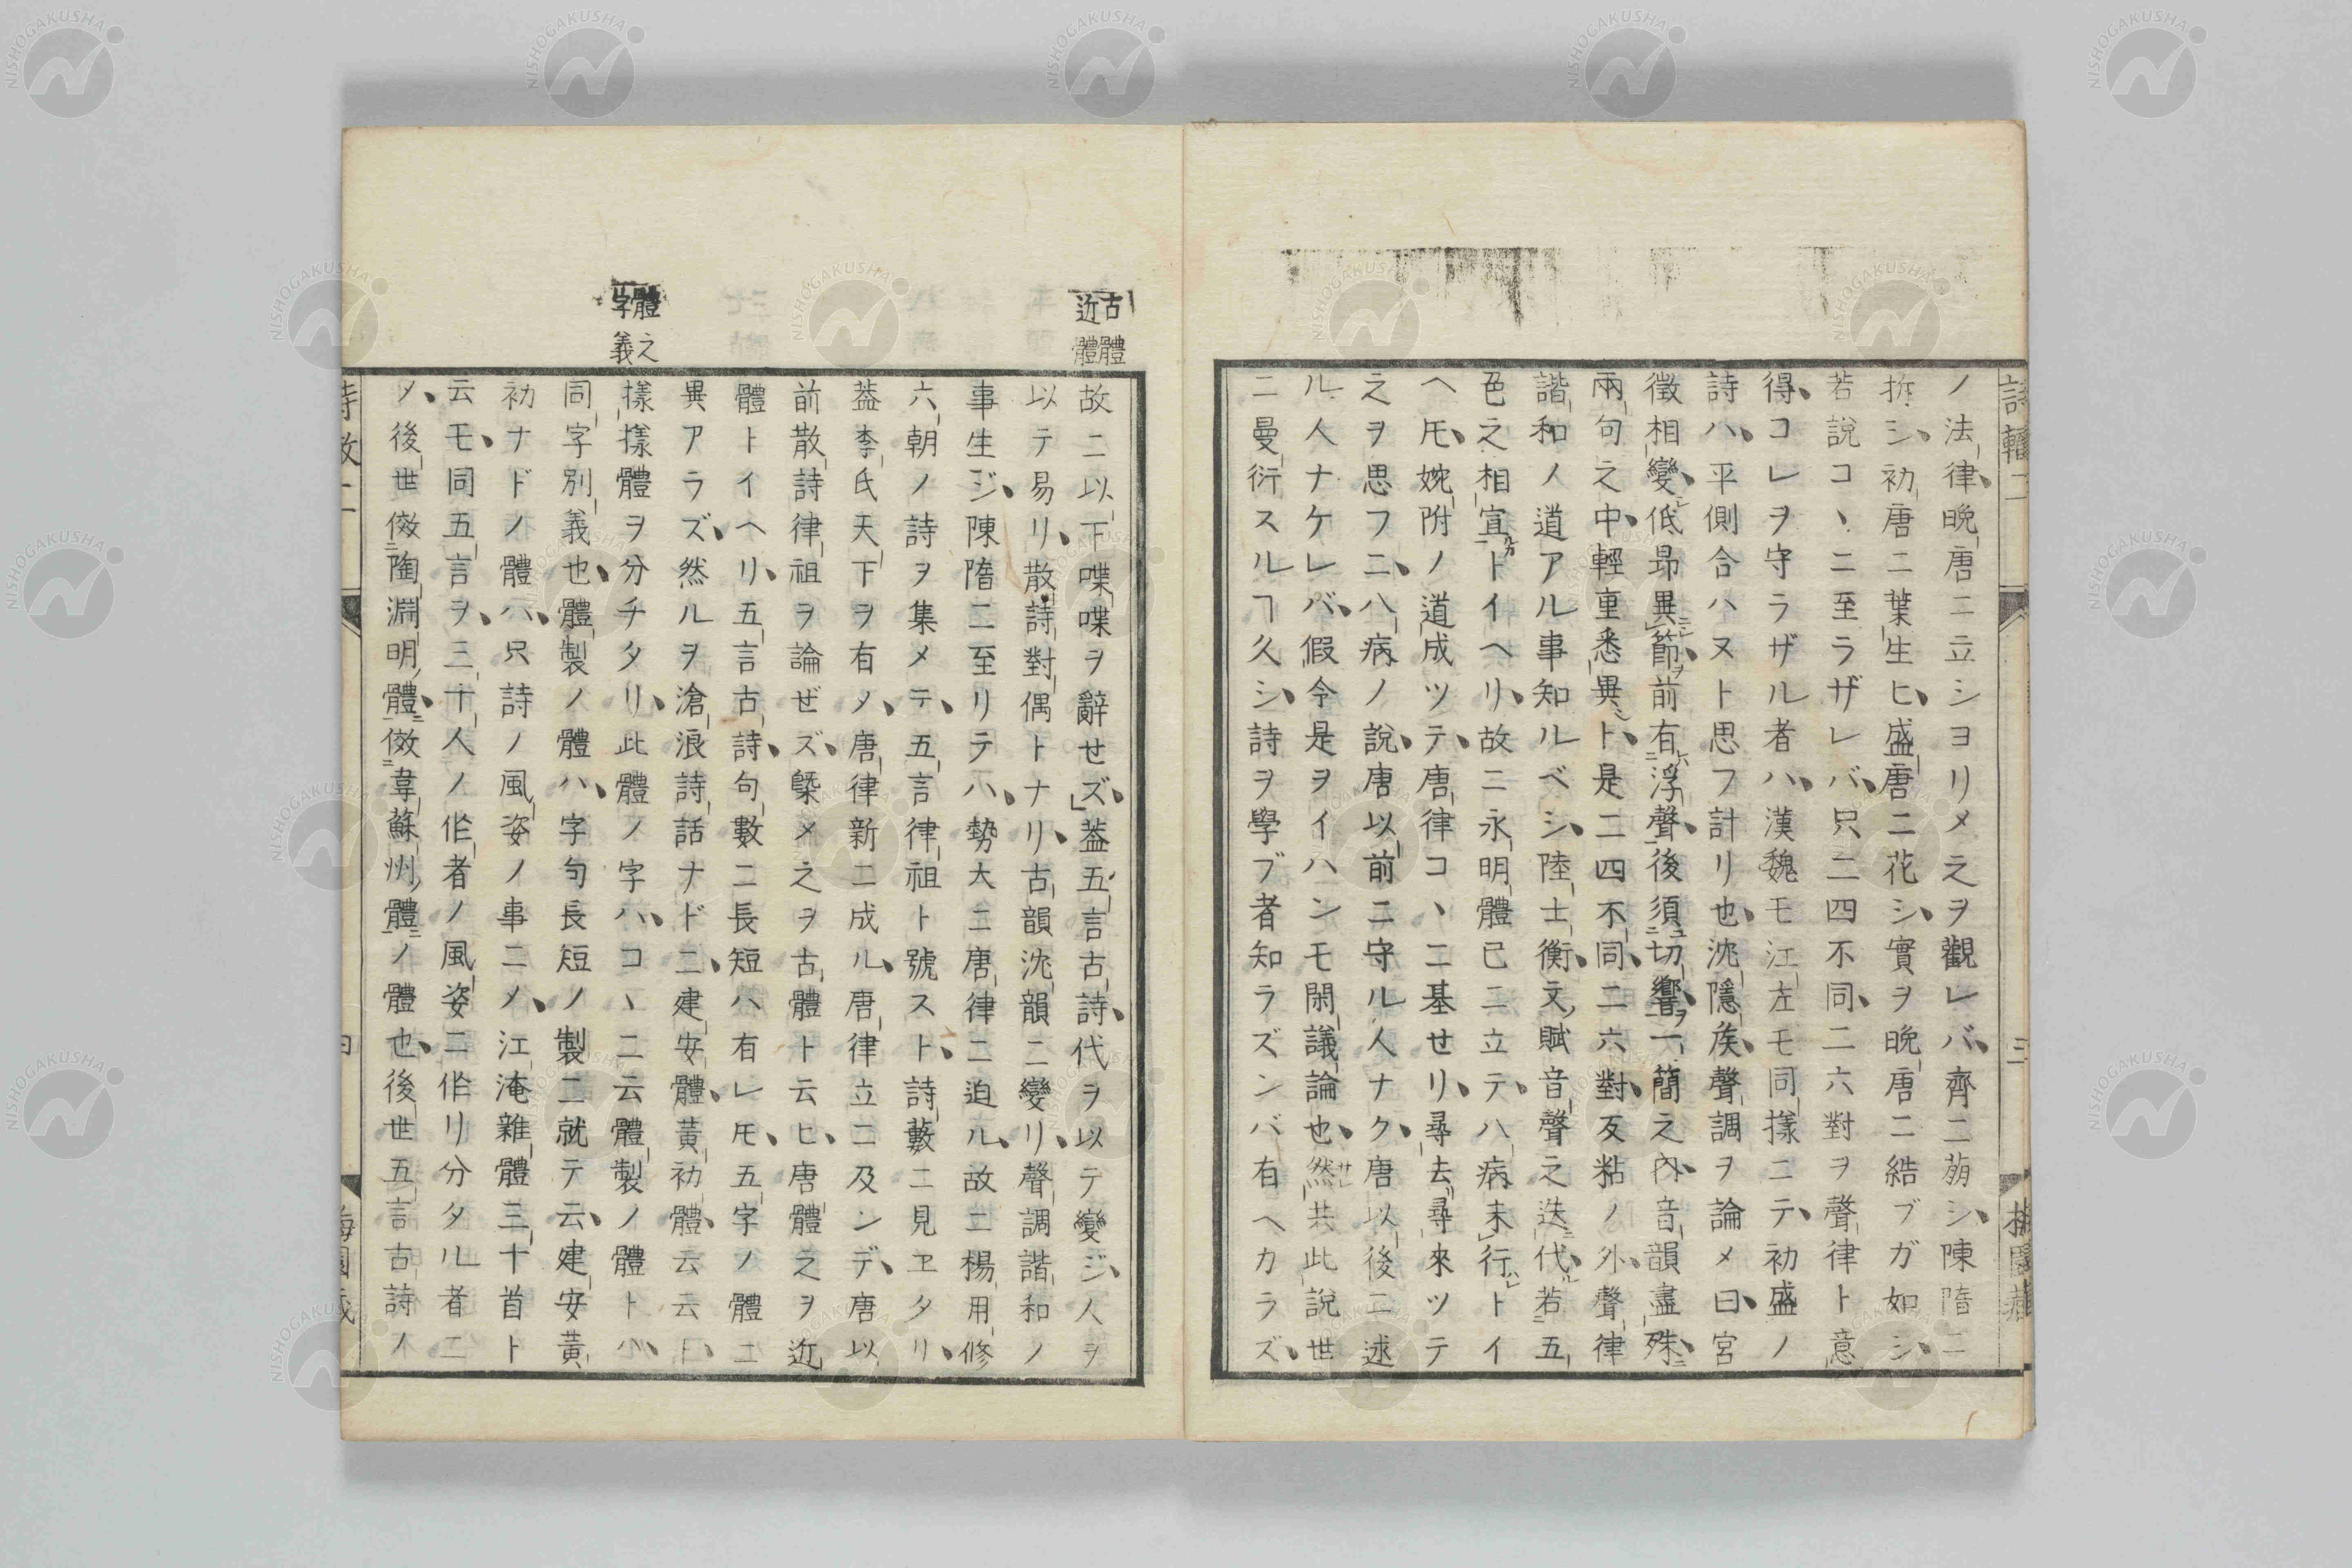 ノ法律、晩唐ニ立シヨリメ之ヲ觀レバ、齊ニ萠シ、陳隋ニ
拆シ、初唐ニ葉生ヒ、盛唐ニ花シ、實ヲ晩唐ニ結ブガ如シ、
若説コヽニ至ラザレバ、只二四不同、二六對ヲ聲律ト意
得、コレヲ守ラザル者ハ、漢魏モ江左モ同樣ニテ、初盛ノ
詩ハ、平側合ハヌト思フ計リ也、沈隱矦、聲調ヲ論メ曰、宮
徴相變、低昻異節、前有浮聲、後須切響、一簡之內、音韻盡殊、
兩句之中、輕重悉異ト、是二四不同、二六對、反粘ノ外、聲律
諧和ノ道アル事知ルベシ、陸士衡、文賦音聲之迭代、若五
色之相宣トイヘリ、故ニ永明體已ニ立テ、八病末行トイ
ヘ𪜈、婉附ノ道成ツテ、唐律コヽニ基セリ、尋去尋來ツテ
之ヲ思フニ、八病ノ説、唐以前ニ守ル人ナク、唐以後ニ述
ル人ナケレバ、假令是ヲイハンモ閑議論也、然共此説世
ニ曼衍スルヿ久シ、詩ヲ學ブ者知ラズンバ有ヘカラズ、
詩轍二
三
梅園藏
古體
近體
故ニ以下喋喋ヲ辭せズ、葢五言古詩、代ヲ以テ變ジ、人ヲ
以テ易リ、散詩對偶トナリ、古韻沈韻ニ變リ、聲調諧和ノ
事生ジ、陳隋ニ至リテハ、勢大ニ唐律ニ迫ル、故ニ楊用修
六朝ノ詩ヲ集メテ、五言律祖ト號スト、詩藪ニ見ヱタリ、
葢李氏天下ヲ有ノ、唐律新ニ成ル、唐律立ニ及ンデ、唐以
前散詩律祖ヲ論ぜズ、槩メ之ヲ古體ト云ヒ、唐體之ヲ近
體トイヘリ、五言古詩、句數ニ長短ハ有レ𪜈、五字ノ體ニ
異アラズ、然ルヲ滄浪詩話ナドニ、建安體、黃初體、云云曰、
體之
字義
樣樣體ヲ分チタリ、此體ノ字ハ、コヽニ云體製ノ體トハ、
同字別義也、體製ノ體ハ、字句長短ノ製ニ就テ云、建安黃
初ナドノ體ハ、只詩ノ風姿ノ事ニメ、江淹雜體三十首ト
云モ、同五言ヲ、三十人ノ作者ノ風姿ニ作リ分タル者ニ
メ、後世傚陶淵明體、傚韋蘇州體ノ體也、後世五言古詩ノ
四